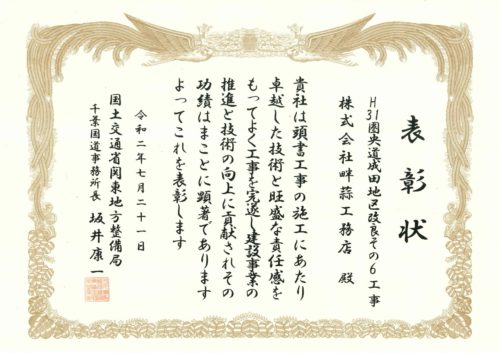 表彰状
H31圏央道成田地区改良その6工事
株式会社畔蒜工務店 殿
貴社は頭書工事の施工にあたり
卓越した技術と旺盛な責任感を
もってよく工事を完遂し建設事業の
推進と技術の向上に貢献されその
功績はまことに顕著であります
よってこれを表彰します
令和二年七月二十一日
国土交通省関東地方整備局
千葉国道事務所長 坂井康一